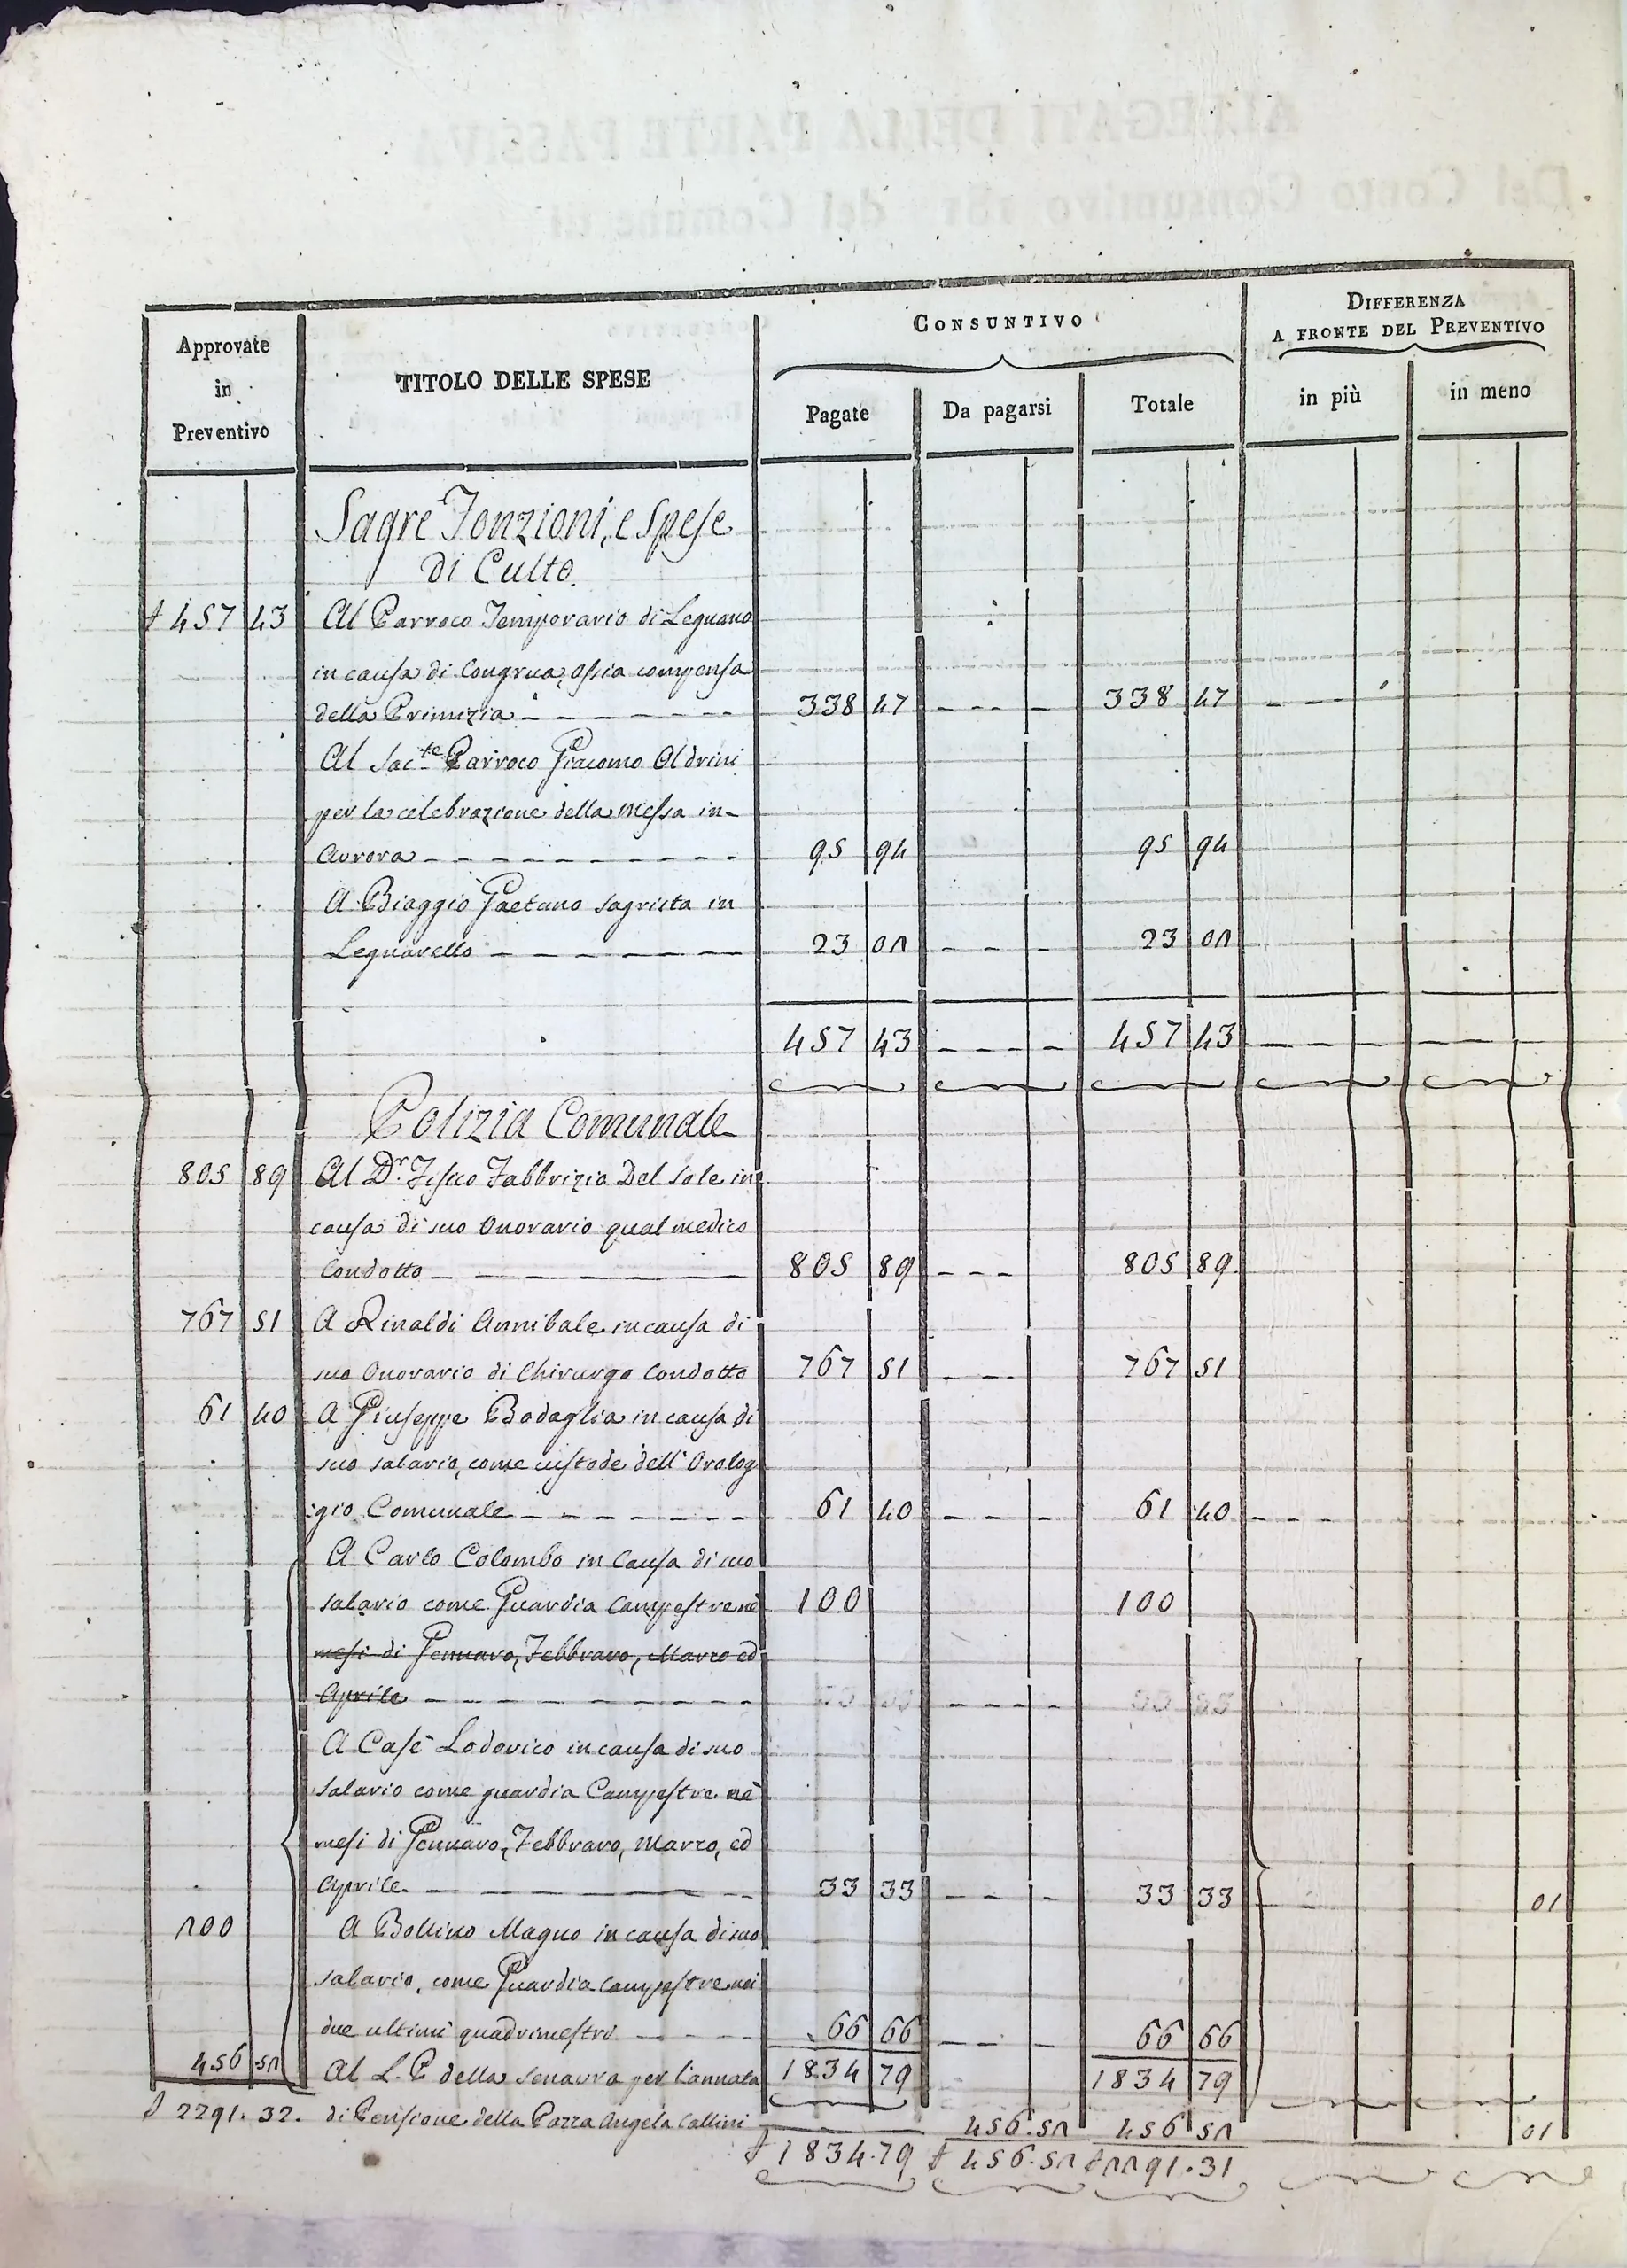 Approvate
in
Preventivo
TITOLO DELLE SPESE
CONSUNTIVO
DIFFERENZA
A FRONTE DEL PREVENTIVO
Pagate
Da pagarsi
Totale
in più
in meno
Sagre Fonzioni, e Spese
di Culto.
457 43 Al Parroco Temporario di Legnano
in causa di Congrua, ossia compensa
della Primizia - - - - - - - 338 47 - - - - 338 47 - - -
Al Sac.te Parroco Giacomo Oldrini
per la celebrazione della Messa in-
Aurora - - - - - - - - - - 95 94 95 94
A Biaggio Gaetano Sagrista in
Legnarello - - - - - - - 23 01 - - - 23 01
457 43 - - - - 457 43 - - - - - -
Polizia Comunale
805 89 Al Dr. Fisico Fabbrizio Del Sole in
causa di suo Onorario qual medico
Condotto - - - - - - 805 89 - - - 805 89
767 51 A Rinaldi Annibale in causa di
suo Onorario di Chirurgo Condotto 767 51 - - - 767 51
61 40 A Giuseppe Badaglia in causa di
suo salario, come custode dell'Orolog
:gio Comunale - - - - - - - 61 40 - - - 61 40 - - -
A Carlo Colombo in Causa di suo
salario come Guardia Campestre nè 100 100
mesi di Gennaro, Febbraro, Marzo ed
Aprile - - - - - - - - - - - - -
A Casè Lodovico in causa di suo
salario come guardia Campestre nè
mesi di Gennaro, Febbraro, Marzo, ed
Aprile - - - - - - - 33 33 - - - 33 33 01
100 A Bollino Magno in causa di suo
salario, come Guardia Campestre nei
due ultimi quadrimestri - - - - 66 66 - - - 66 66
456 51 Al L. P. della Senavra per l'annata 1834 79 1834 79
2291. 32. di Pensione della Pazza Angela Callini 456.51 456 51 01
1834.79 456.51 1191.31